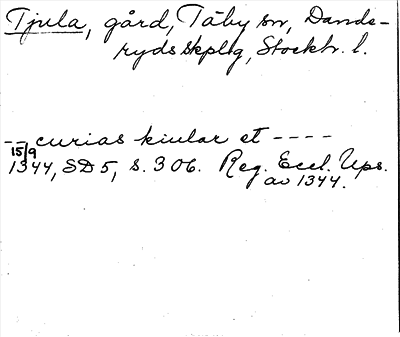 Tjula, gård, Täby sn, Dande-
ryds skplg, Stockh. l.
-- curias kiular et ----
15/9
1344, SD 5, s. 306. Reg. Eccl. Ups.
av 1344.